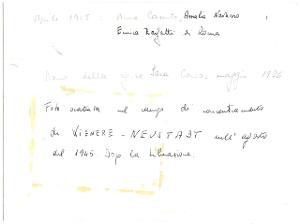 Aprile 1945 : Anna Cassuto, Amalia Navarro
Emma Zerfatti di Roma
Dono della sig.ra Sara Corcos maggio 1956
Foto scattata nel campo di concentramento
di WIENERE - NEUSTADT nell' agosto
del 1945 dopo la liberazione.